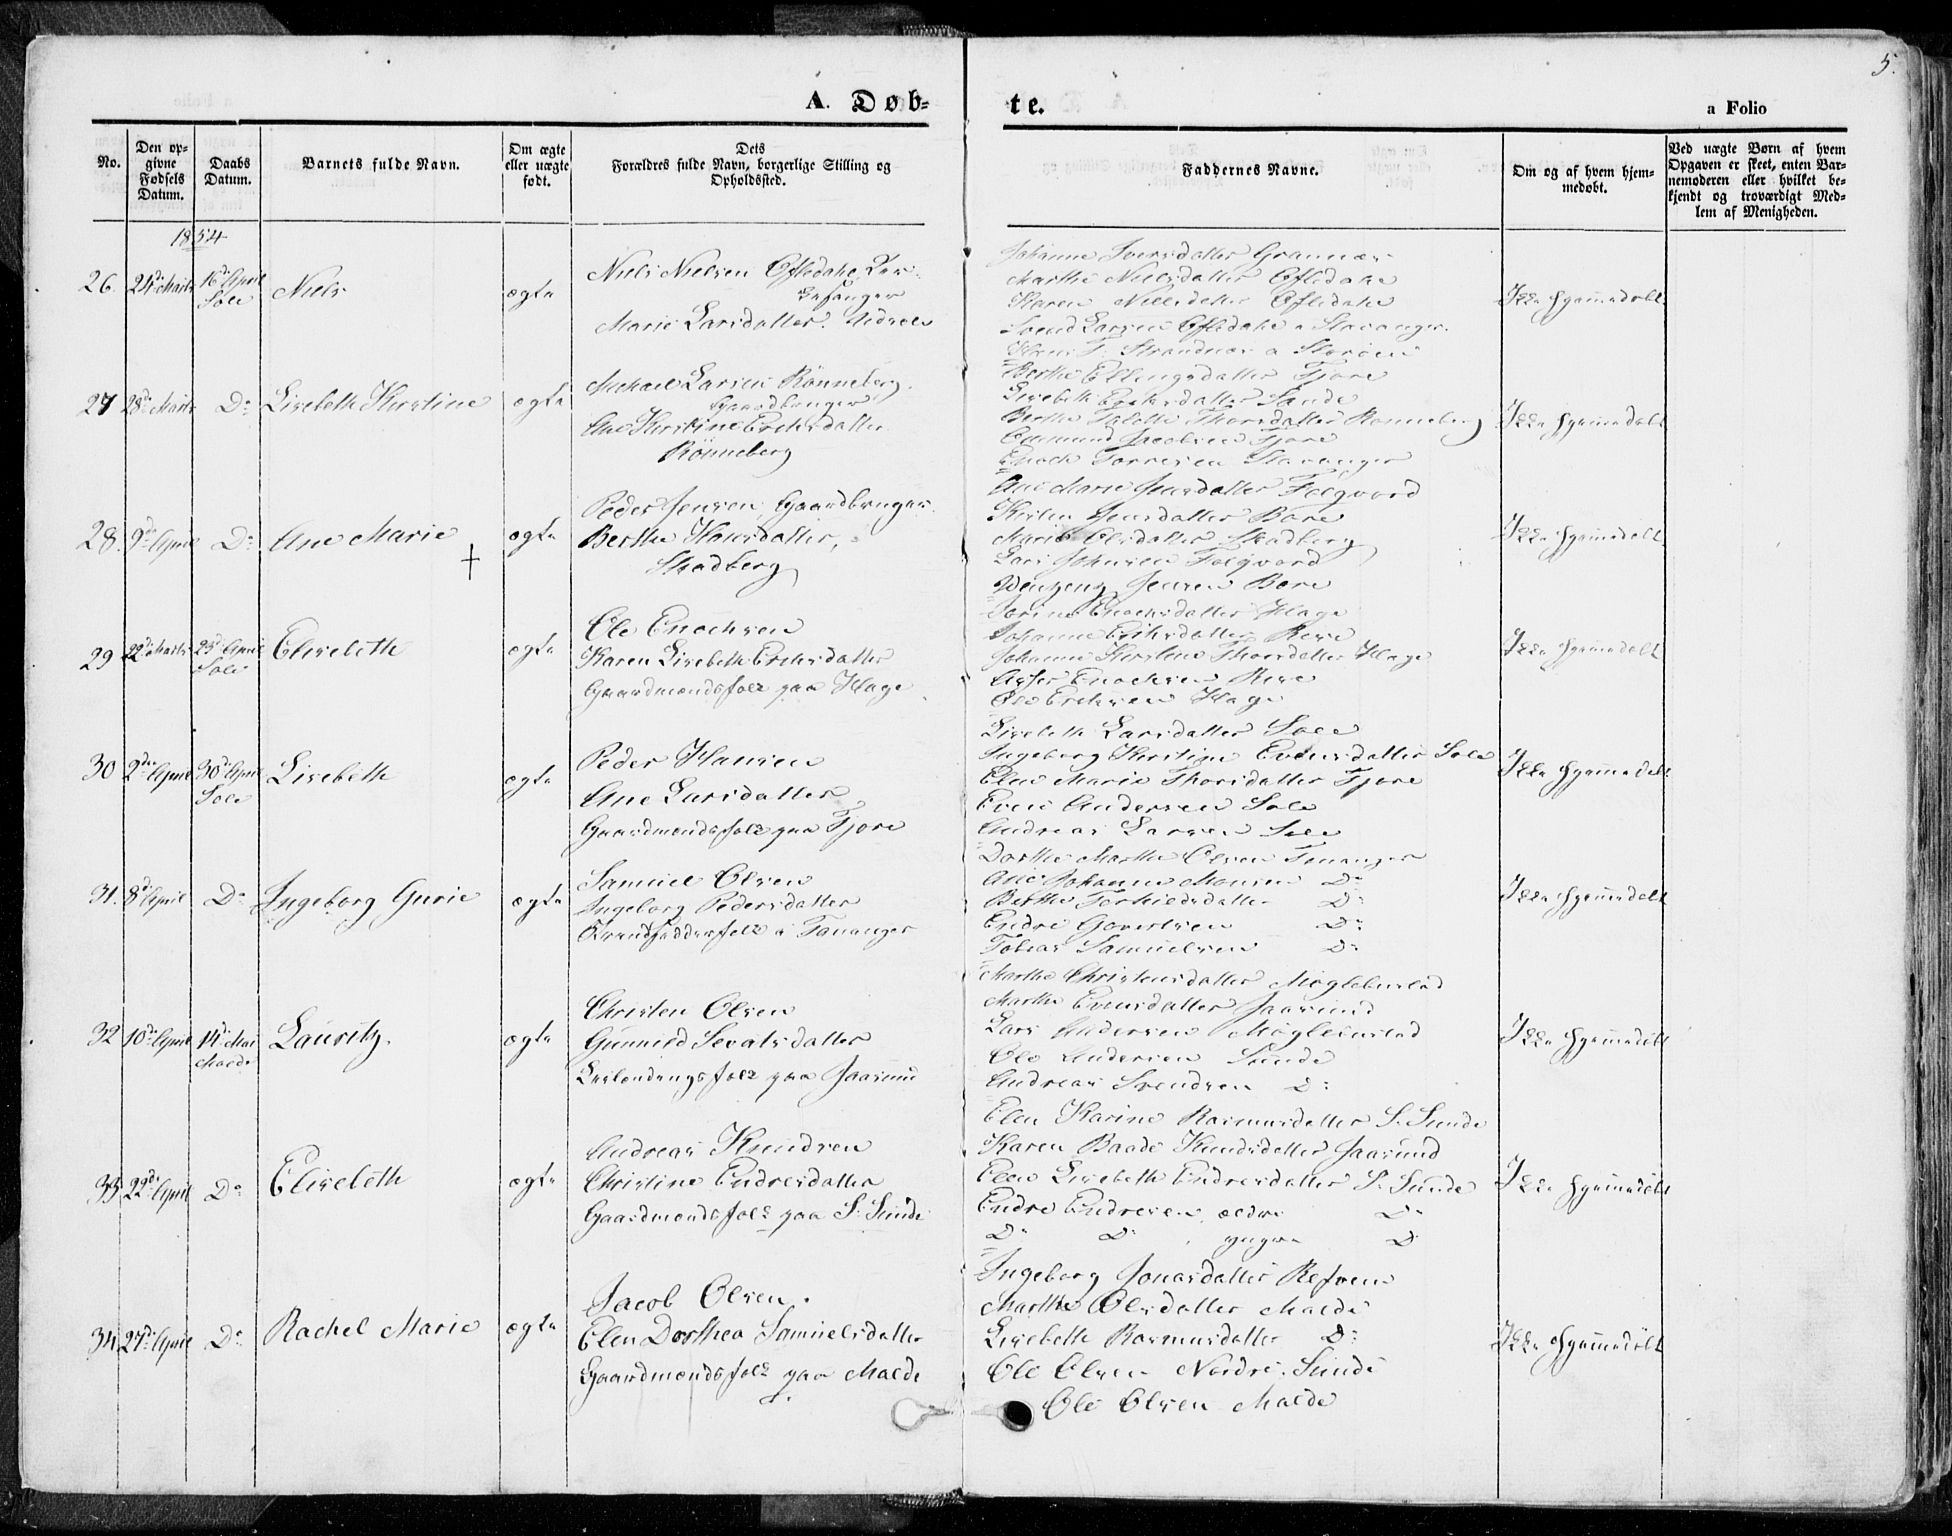 5.
A. Døb-
te.
a Folio
No.
Den op-
givne
Fødsels
Datum.
Daabs
Datum.
Barnets fulde Navn.
Om ægte
eller uægte
født.
Dets
Forældres fulde Navn, borgerlige Stilling og
Opholdssted.
Faddernes Navne.
Om og af hvem hjem-
medøbt.
Ved uægte Børn af hvem
Opgaven er skeet, enten Bar-
nemoderen eller hvilket be-
kjendt og troværdigt Med-
lem af Menigheden.
1854
26.
24de Marts
16de April
Sole
Niels
ægte
Niels Nielsen
Marie Larsdatter
Johanne Iversdatter Grannæs
Marthe Nielsdatter
Karen Nielsdatter
Svend Larsen Stavanger
Ikke hjemmedøbt
27
28de Marts
Do
Lisebeth Kirstine
ægte
Michael Larsen Rönneberg
Gaardbruger
Ane Kirstine Eriksdatter
Rönneberg
Berthe Ellingsdatter Tjore
Lisebeth Eriksdatter Sande
Berthe Thorsdatter Rönneberg
Gudmund Jacobsen Tjore
Enoch Torresen Stavanger
Ikke hjemmedøbt
28.
9de April
Do
Ane Marie
†
ægte
Peder Jensen, Gaardbruger
Berthe Hansdatter,
Skadberg
Ane Marie Jensdatter
Kirsten Jensdatter Bore
Marie Olsdatter Skadberg
Lars Johnsen
Jensen Bore
Ikke hjemmedøbt
29
22de Marts
23de April
Sole
Elisebeth
ægte
Ole Enochsen
Karen Lisebeth Eriksdatter
Gaardmandsfolk paa Hage
Sorine Enochsdatter Hage
Johanne Eriksdatter Rege
Johanne Kirstine Thorsdatter Hage
Enochsen Rege
Ole Eriksen Hage
Ikke hjemmedøbt
30
2den April
30de April
Sole
Lisebeth
ægte
Peder Hansen
Ane Larsdatter
Gaardmandsfolk paa Tjore
Lisebeth Larsdatter Sole
Ingeborg Kirstine Evensdatter Sole
Elen Marie Thorsdatter Tjore
Even Andersen Sole
Andreas Larsen Sole
Ikke hjemmedøbt
31.
8de April
Do
Ingeborg Gurie
ægte
Samuel Olsen
Ingeborg Pedersdatter
Strandsidderfolk i Tananger
Dorthe Marthe Olsen Tananger
Ane Johanne Monsen Do
Berthe Torkildsdatter Do
Endre Govertsen Do
Tobias Samuelsen Do
Ikke hjemmedøbt
32
10de April
14de Mai
Malde
Lauritz.
ægte
Christen Olsen
Gunnild Sevatsdatter
Leilendingsfolk paa Jaasund
Marthe Christensdatter Møglebustad
Marthe Evensdatter Jaasund
Lars Andersen Møglebustad
Ole Andersen Sunde
Andreas Svendsen Do
Ikke hjemmedøbt
33
22de April
Do
Elisebeth
ægte
Andreas Knudsen
Christine Endresdatter
Gaardmandsfolk paa S. Sunde
Elen Karine Rasmusdatter S. Sunde
Karen Baade Knudsdatter Jaasund
Elen Lisebeth Endresdatter S. Sunde
Endre Endresen, ældre Do
Do Do, yngre Do
Ikke hjemmedøbt
34
27de April
Do
Rachel Marie
ægte
Jacob Olsen.
Elen Dorthea Samuelsdatter
Gaardmandsfolk paa Malde
Ingeborg Jonasdatter Refsnes
Marthe Olsdatter Malde
Lisebeth Rasmusdatter Do
Ole Olsen Nordre Sunde
Ole Olsen Malde
Ikke hjemmedøbt